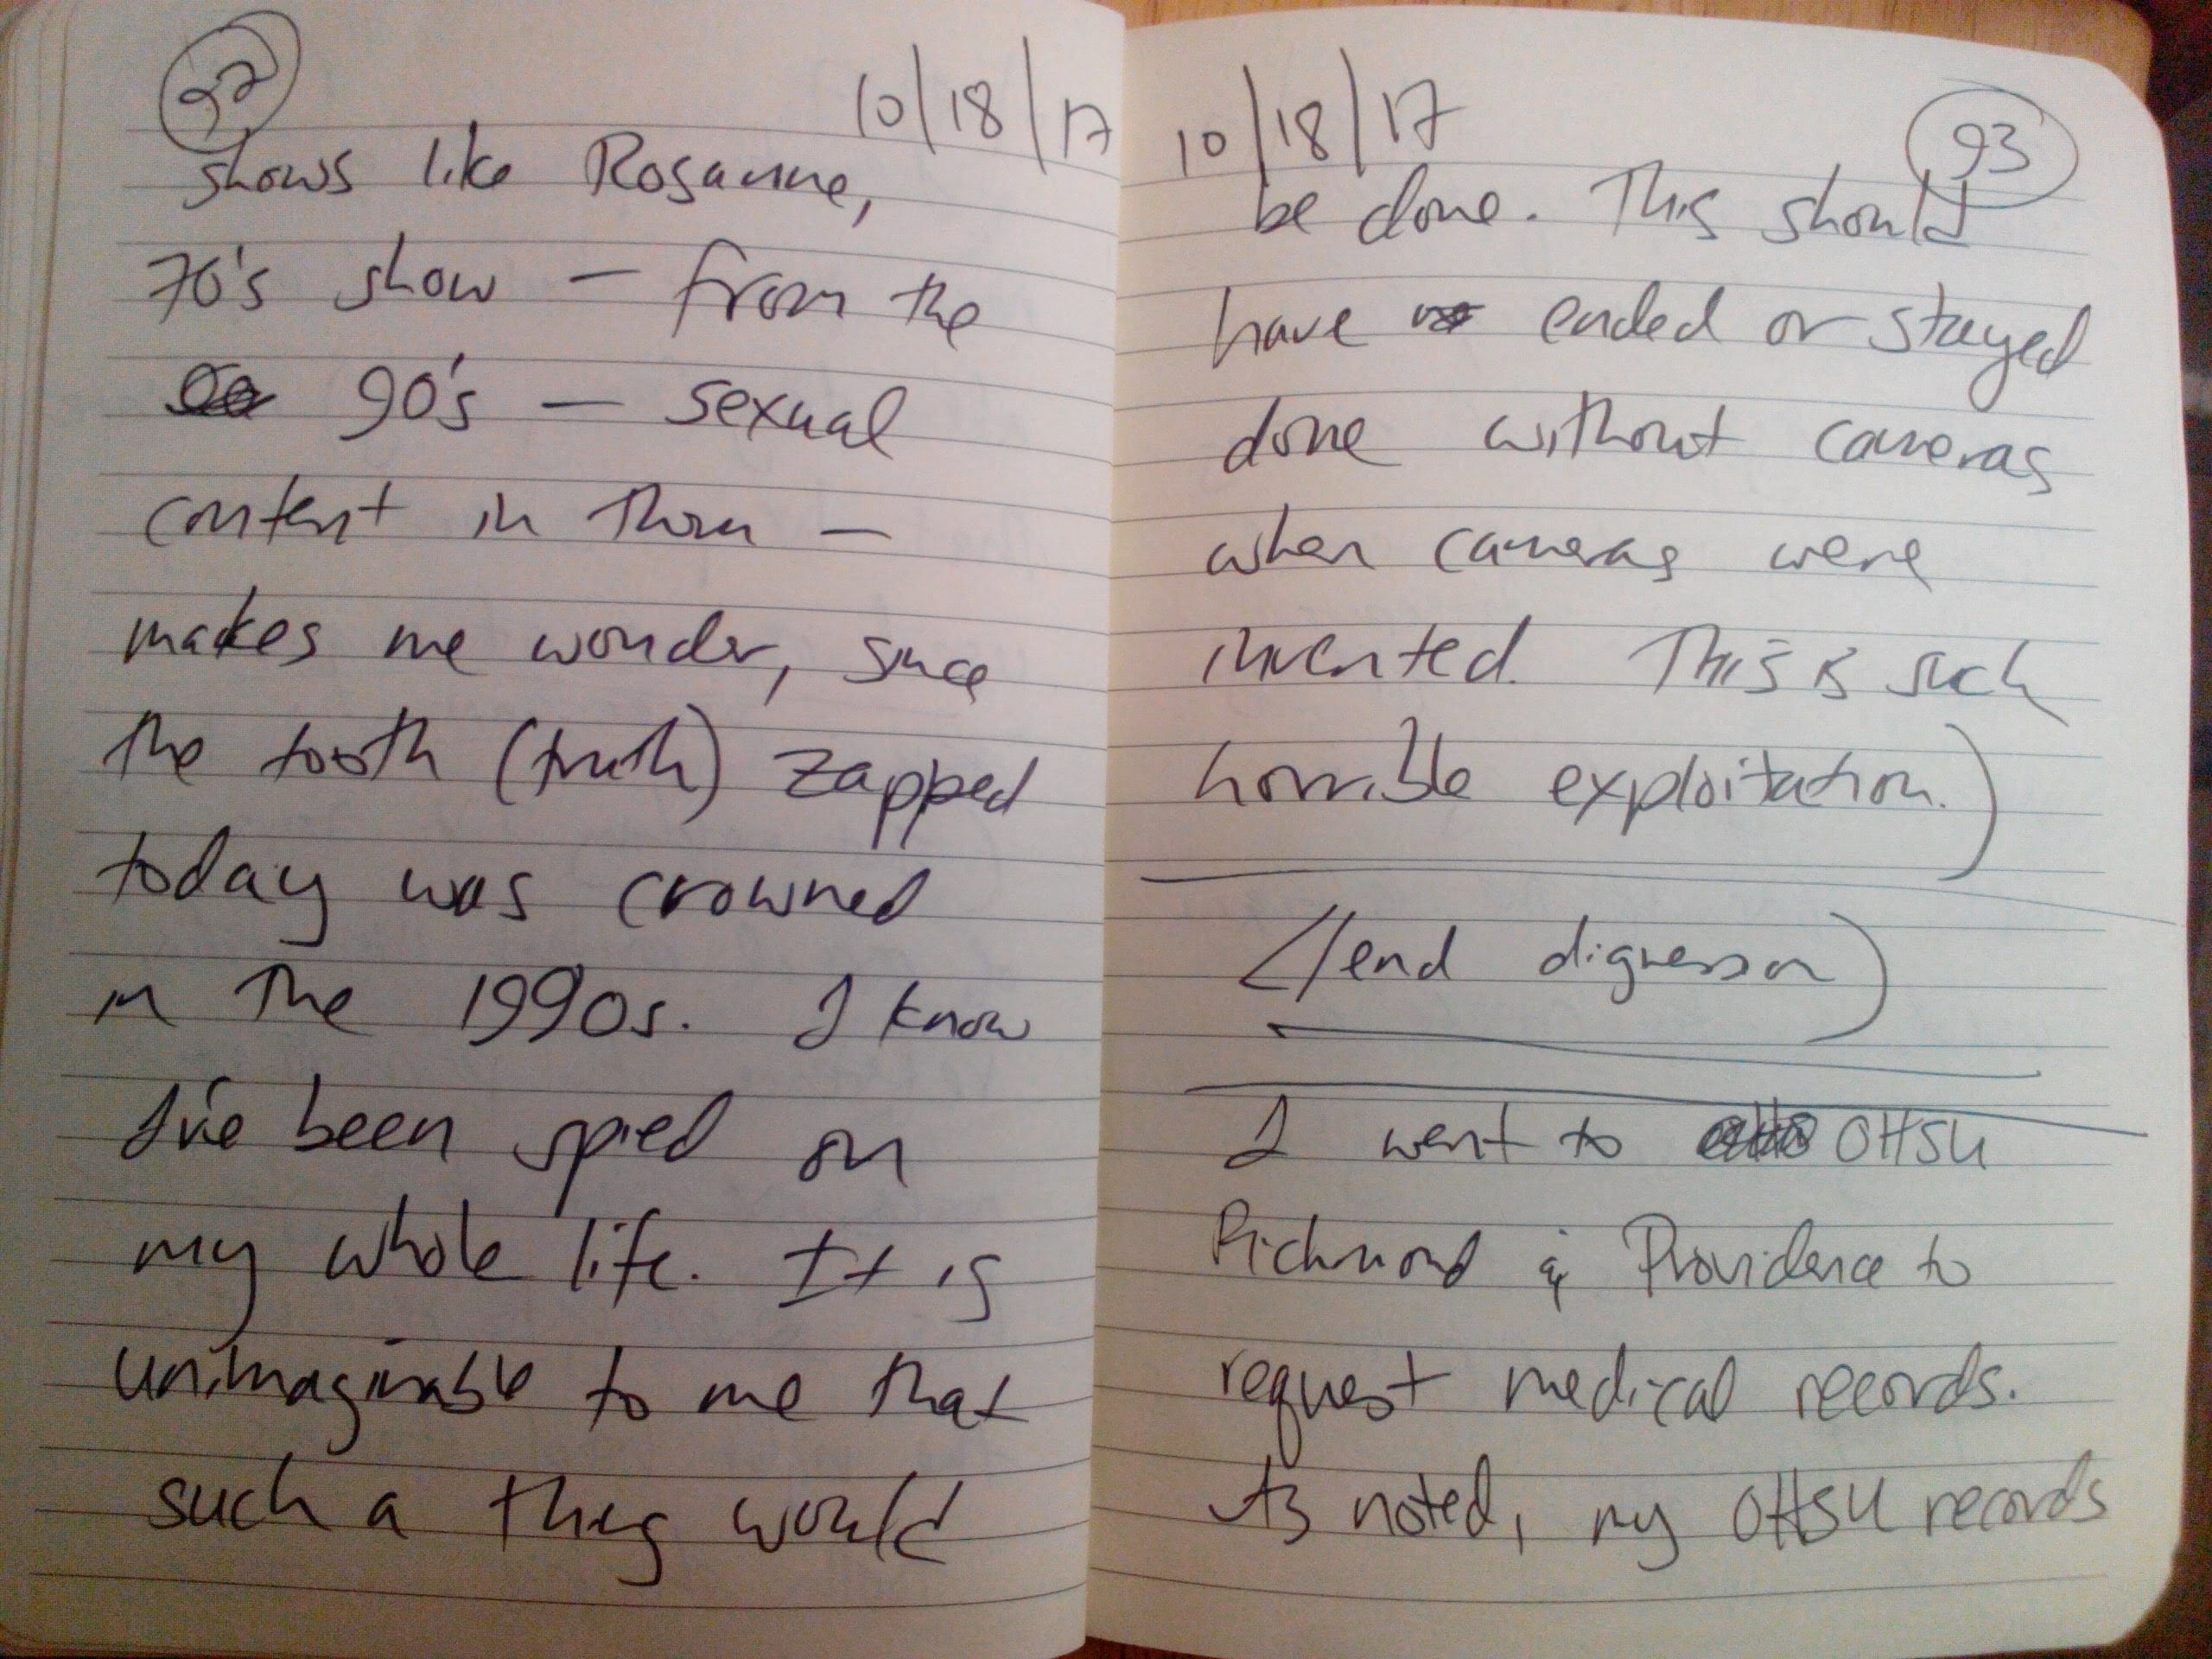 92
10/18/17
shows like Rosanne,
70's show — from the
90's — sexual
content in them —
makes me wonder, since
the tooth (truth) zapped
today was crowned
in the 1990s. I know
I've been spied on
my whole life. It is
unimaginable to me that
such a thing would
10/18/17
93
be done. This should
have ended or stayed
done without cameras
when cameras were
invented. This is such
horrible exploitation.)
(/end digression)
I went to OHSU
Richmond & Providence to
request medical records.
As noted, my OHSU records